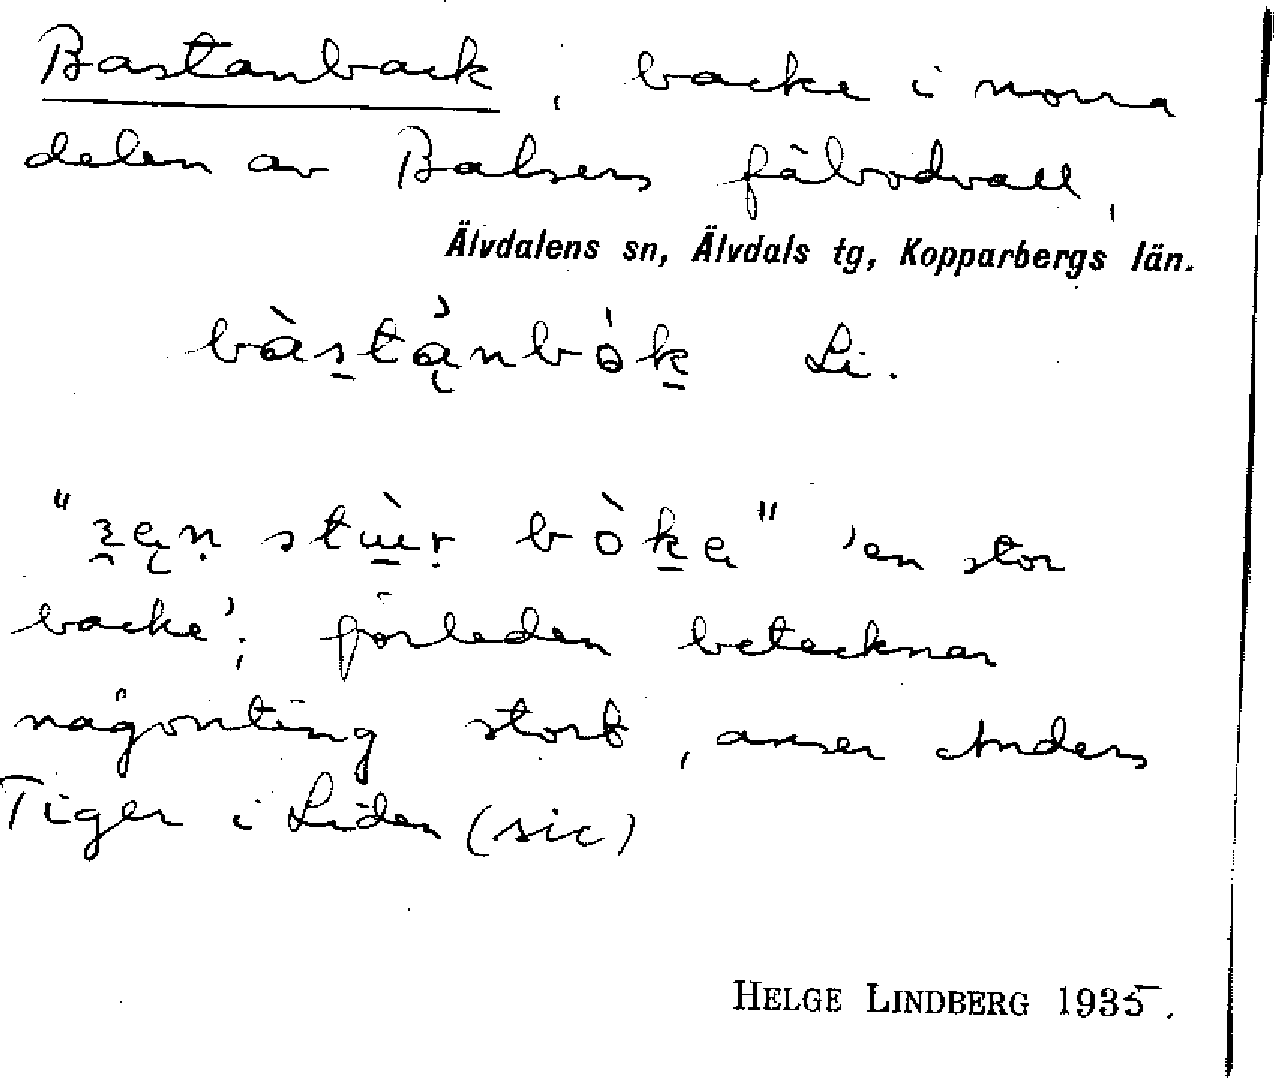 Bastanback, backe i norra
delen av Balsers fäbodvall,
Älvdalens sn, Älvdals tg, Kopparbergs län.
bàstą̀nbòk Li.
stùr bòkę" 'en stor
backe'; förleden betecknar
någonting stort, anser Anders
Tiger i Liden (sic)
HELGE LINDBERG 1935.